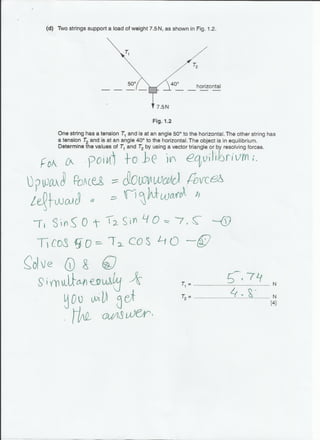 (d) Two strings support a load of weight 7.5 N, as shown in Fig. 1.2.
T₁
T₂
50° 40° horizontal
7.5 N
Fig. 1.2
One string has a tension T₁ and is at an angle 50° to the horizontal. The other string has
a tension T₂ and is at an angle 40° to the horizontal. The object is in equilibrium.
Determine the values of T₁ and T₂ by using a vector triangle or by resolving forces.
For a point to be in equilibrium:
Upward forces = downward forces
Leftward " = rightward "
T₁ Sin50 + T₂ Sin 40 = 7.5 —①
T₁ cos 50 = T₂ cos 40 —②
Solve ① & ②
simultaneously &
you will get
the answer.
T₁ = 5.74 N
T₂ = 4.8 N
[4]